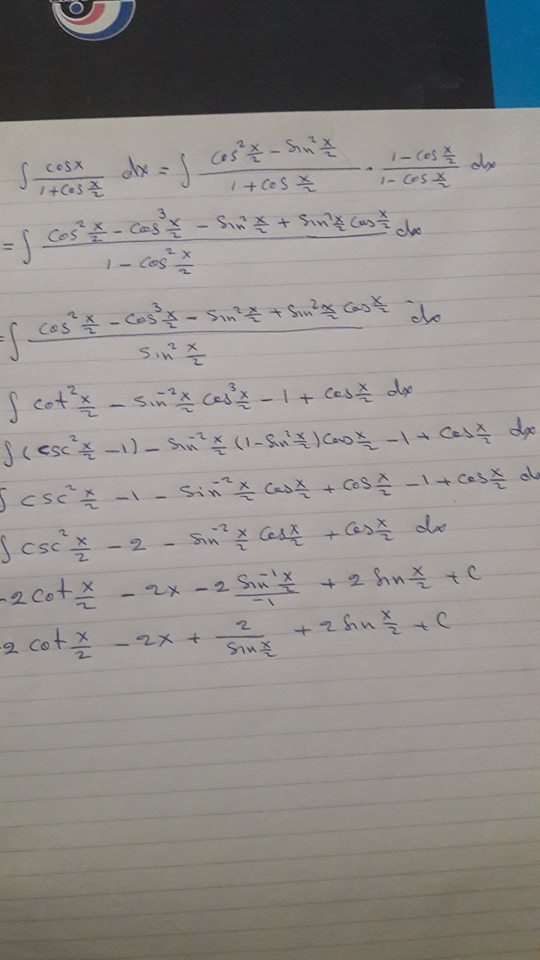 ∫ cosx / (1+cos x/2) dx = ∫ (cos² x/2 − sin² x/2) / (1+cos x/2) · (1−cos x/2) / (1−cos x/2) dx
= ∫ (cos² x/2 − cos³ x/2 − sin² x/2 + sin² x/2 cos x/2) / (1−cos² x/2) dx
= ∫ (cos² x/2 − cos³ x/2 − sin² x/2 + sin² x/2 cos x/2) / (sin² x/2) dx
∫ cot² x/2 − sin⁻² x/2 cos³ x/2 − 1 + cos x/2 dx
∫ (csc² x/2 − 1) − sin⁻² x/2 (1−sin² x/2) cos x/2 − 1 + cos x/2 dx
∫ csc² x/2 − 1 − sin⁻² x/2 cos x/2 + cos x/2 − 1 + cos x/2 dx
∫ csc² x/2 − 2 − sin⁻² x/2 cos x/2 + cos x/2 dx
−2 cot x/2 − 2x − 2 (sin⁻¹ x/2) / (−1) + 2 sin x/2 + c
−2 cot x/2 − 2x + 2 / (sin x/2) + 2 sin x/2 + c